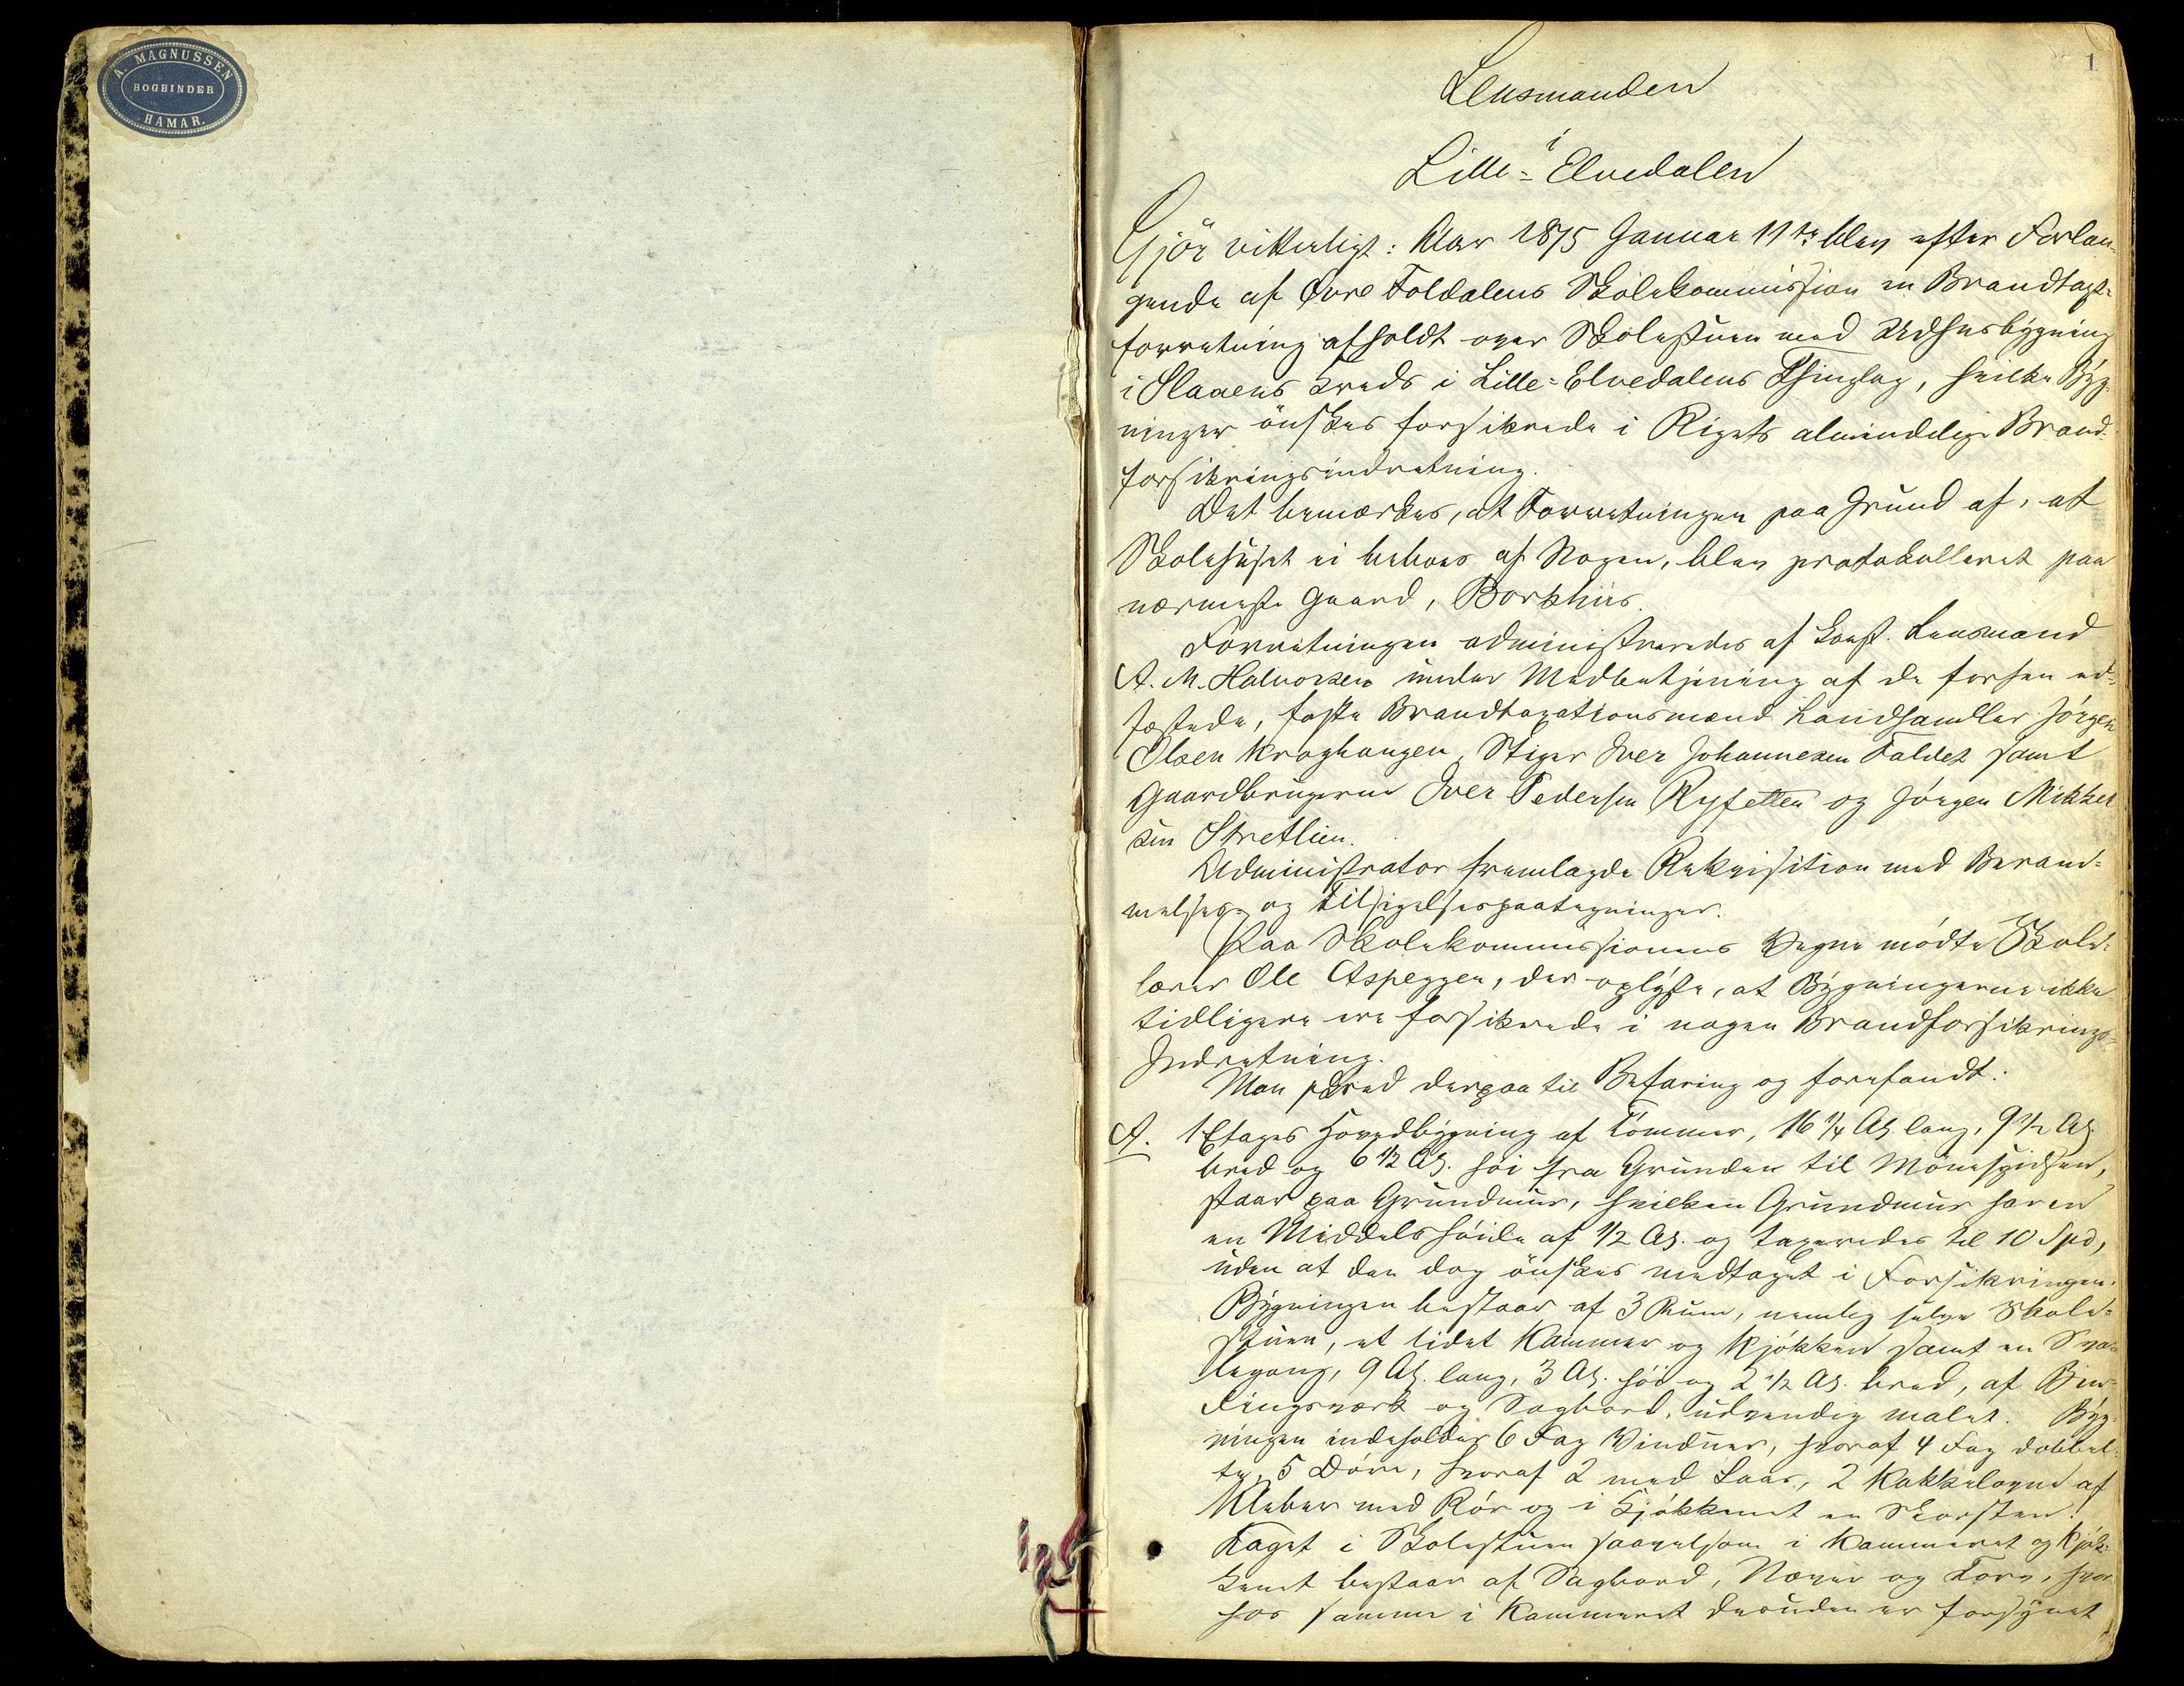 A. MAGNUSSEN
BOGBINDER
HAMAR.
1
Lensmanden
i
Lille-Elvedalen
Gjör vitterligt: Aar 1875 Januar 11te blev efter Forlan-
gende af Øvre Foldalens Skolekommission en Brandtaxt-
forretning afholdt over Skolestuen med Udhusbygning
i Slaaens Kreds i Lille-Elvedalens Thinglag, hvilke Byg-
ninger önskes forsikrede i Rigets almindelige Brand-
forsikringsindretning.
Det bemærkes, at Forretningen paa Grund af, at
Skolehuset ei beboes af Nogen, blev protokolleret paa
nærmeste Gaard, Borkhus.
Forretningen administreredes af const. Lensmand
A. M. Halvorsen under Medbetjening af de forhen ed-
fæstede, faste Brandtaxationsmænd Landhandler Jörgen
Olsen Kroghaugen, Stiger Iver Johannesen Faldet samt
Gaardbrugerne Iver Pedersen Ryfetten og Jörgen Mikkel-
sen Stretlien.
Administrator fremlagde Rekvisition med Beram-
melses- og Tilsigelsespaategninger.
Paa Skolekommissionens Vegne mödte Skole-
lærer Ole Aspeggen, der oplyste, at Bygningerne ikke
tidligere ere forsikrede i nogen Brandforsikrings-
Indretning.
Man skred derpaa til Befaring og forefandt:
A. 1 Etages Hovedbygning af Tömmer, 16 1/4 Al. lang, 9 1/2 Al.
bred og 6 1/2 Al. höi fra Grunden til Mönespidsen,
staar paa Grundmur, hvilken Grundmur har en
en Middelshöide af 1/2 Al. og taxeredes til 10 Spd,
uden at den dog önskes medtaget i Forsikringen.
Bygningen bestaar af 3 Rum, nemlig selve Skole-
stuen, et lidet Kammer og Kjökken samt en Sva-
legang, 9 Al. lang, 3 Al. höi og 2 1/2 Al. bred, af Bin-
dingsværk og Sagbord, udvendig malet. Byg-
ningen indeholder 6 Fag Vinduer, hvoraf 4 Fag dobbel-
te, 5 Döre, hvoraf 2 med Laas, 2 Kakkelovne af
Kleber med Rör og i Kjökkenet en Skorsten.
Taget i Skolestuen saavelsom i Kammeret og Kjök-
kenet bestaar af Sagbord, Næver og Torv, hvor-
hos samme i Kammeret desuden er forsynet